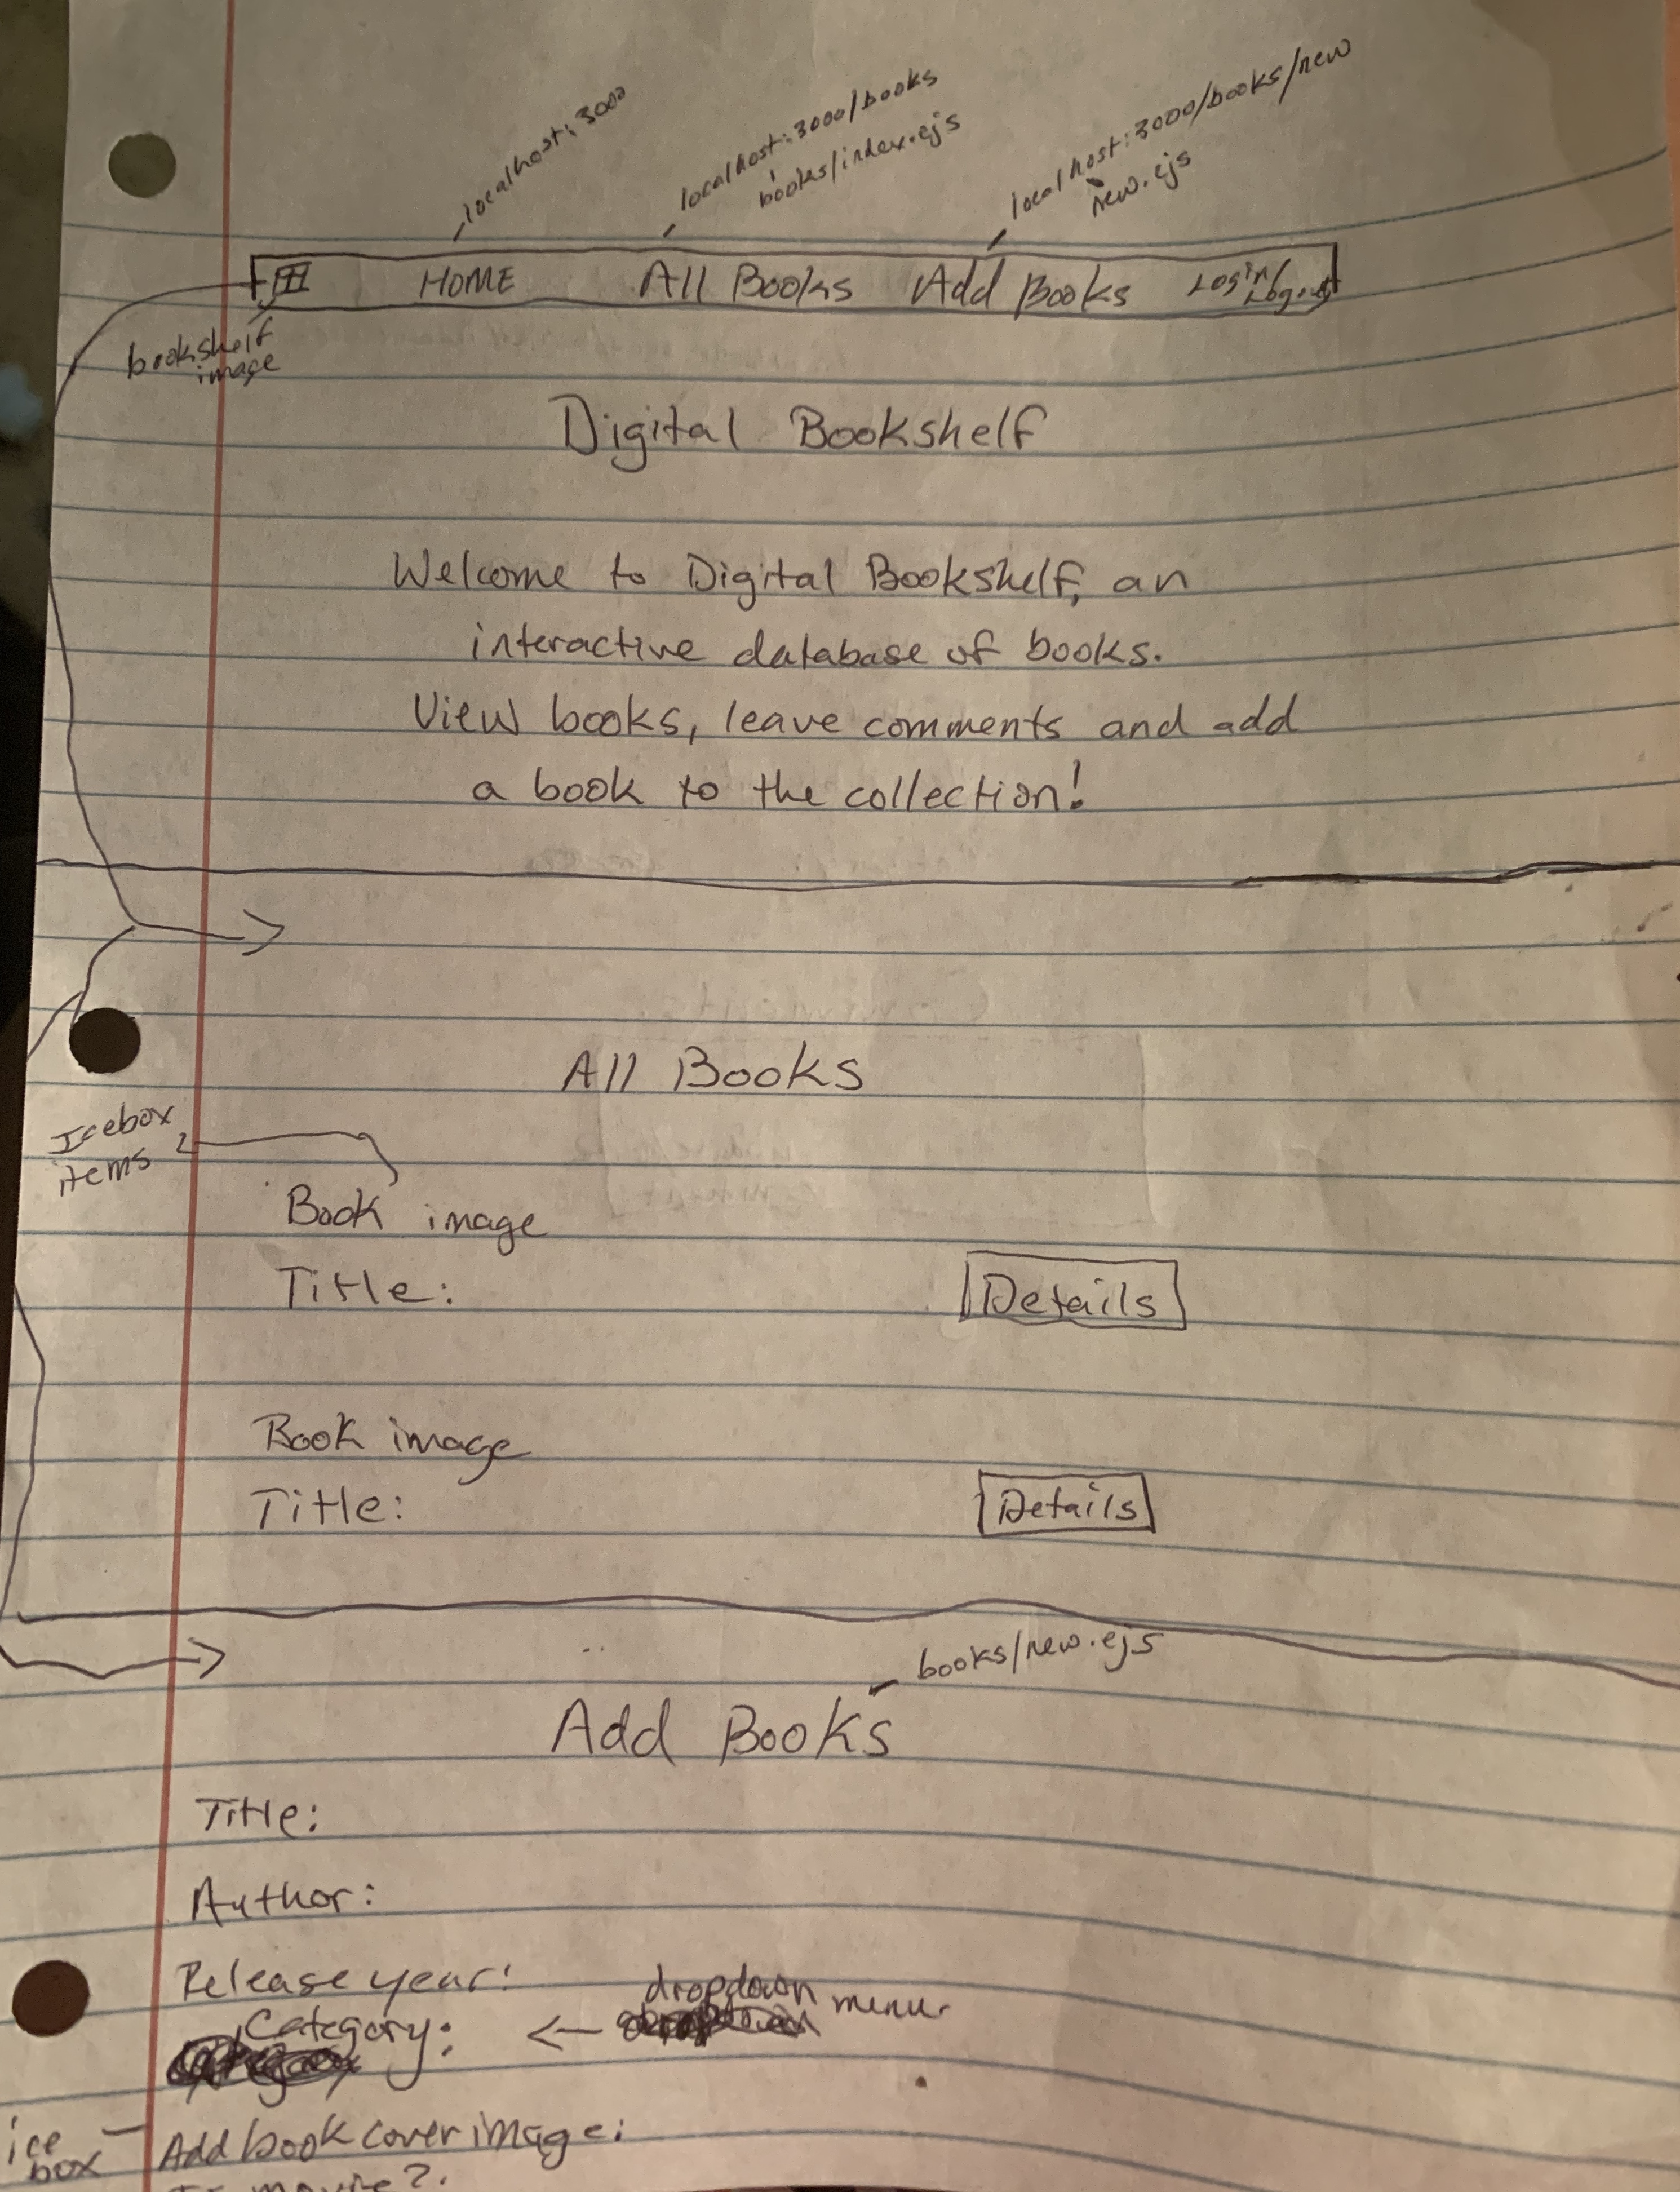 localhost:3000
localhost:3000/books
books/index.ejs
localhost:3000/books/new
new.ejs
HOME
All Books
Add Books
Login/
Logout
bookshelf
image
Digital Bookshelf
Welcome to Digital Bookshelf, an
interactive database of books.
View books, leave comments and add
a book to the collection!
All Books
Icebox
items
Book image
Title:
Details
Book image
Title:
Details
books/new.ejs
Add Books
Title:
Author:
Release year:
dropdown menu
Category:
ice
box
Add book cover image:
movie?